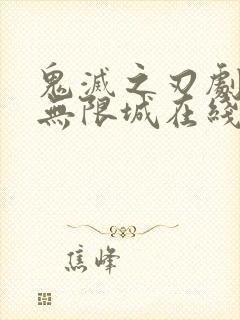 鬼滅之刃劇
無限城在綫
焦峰